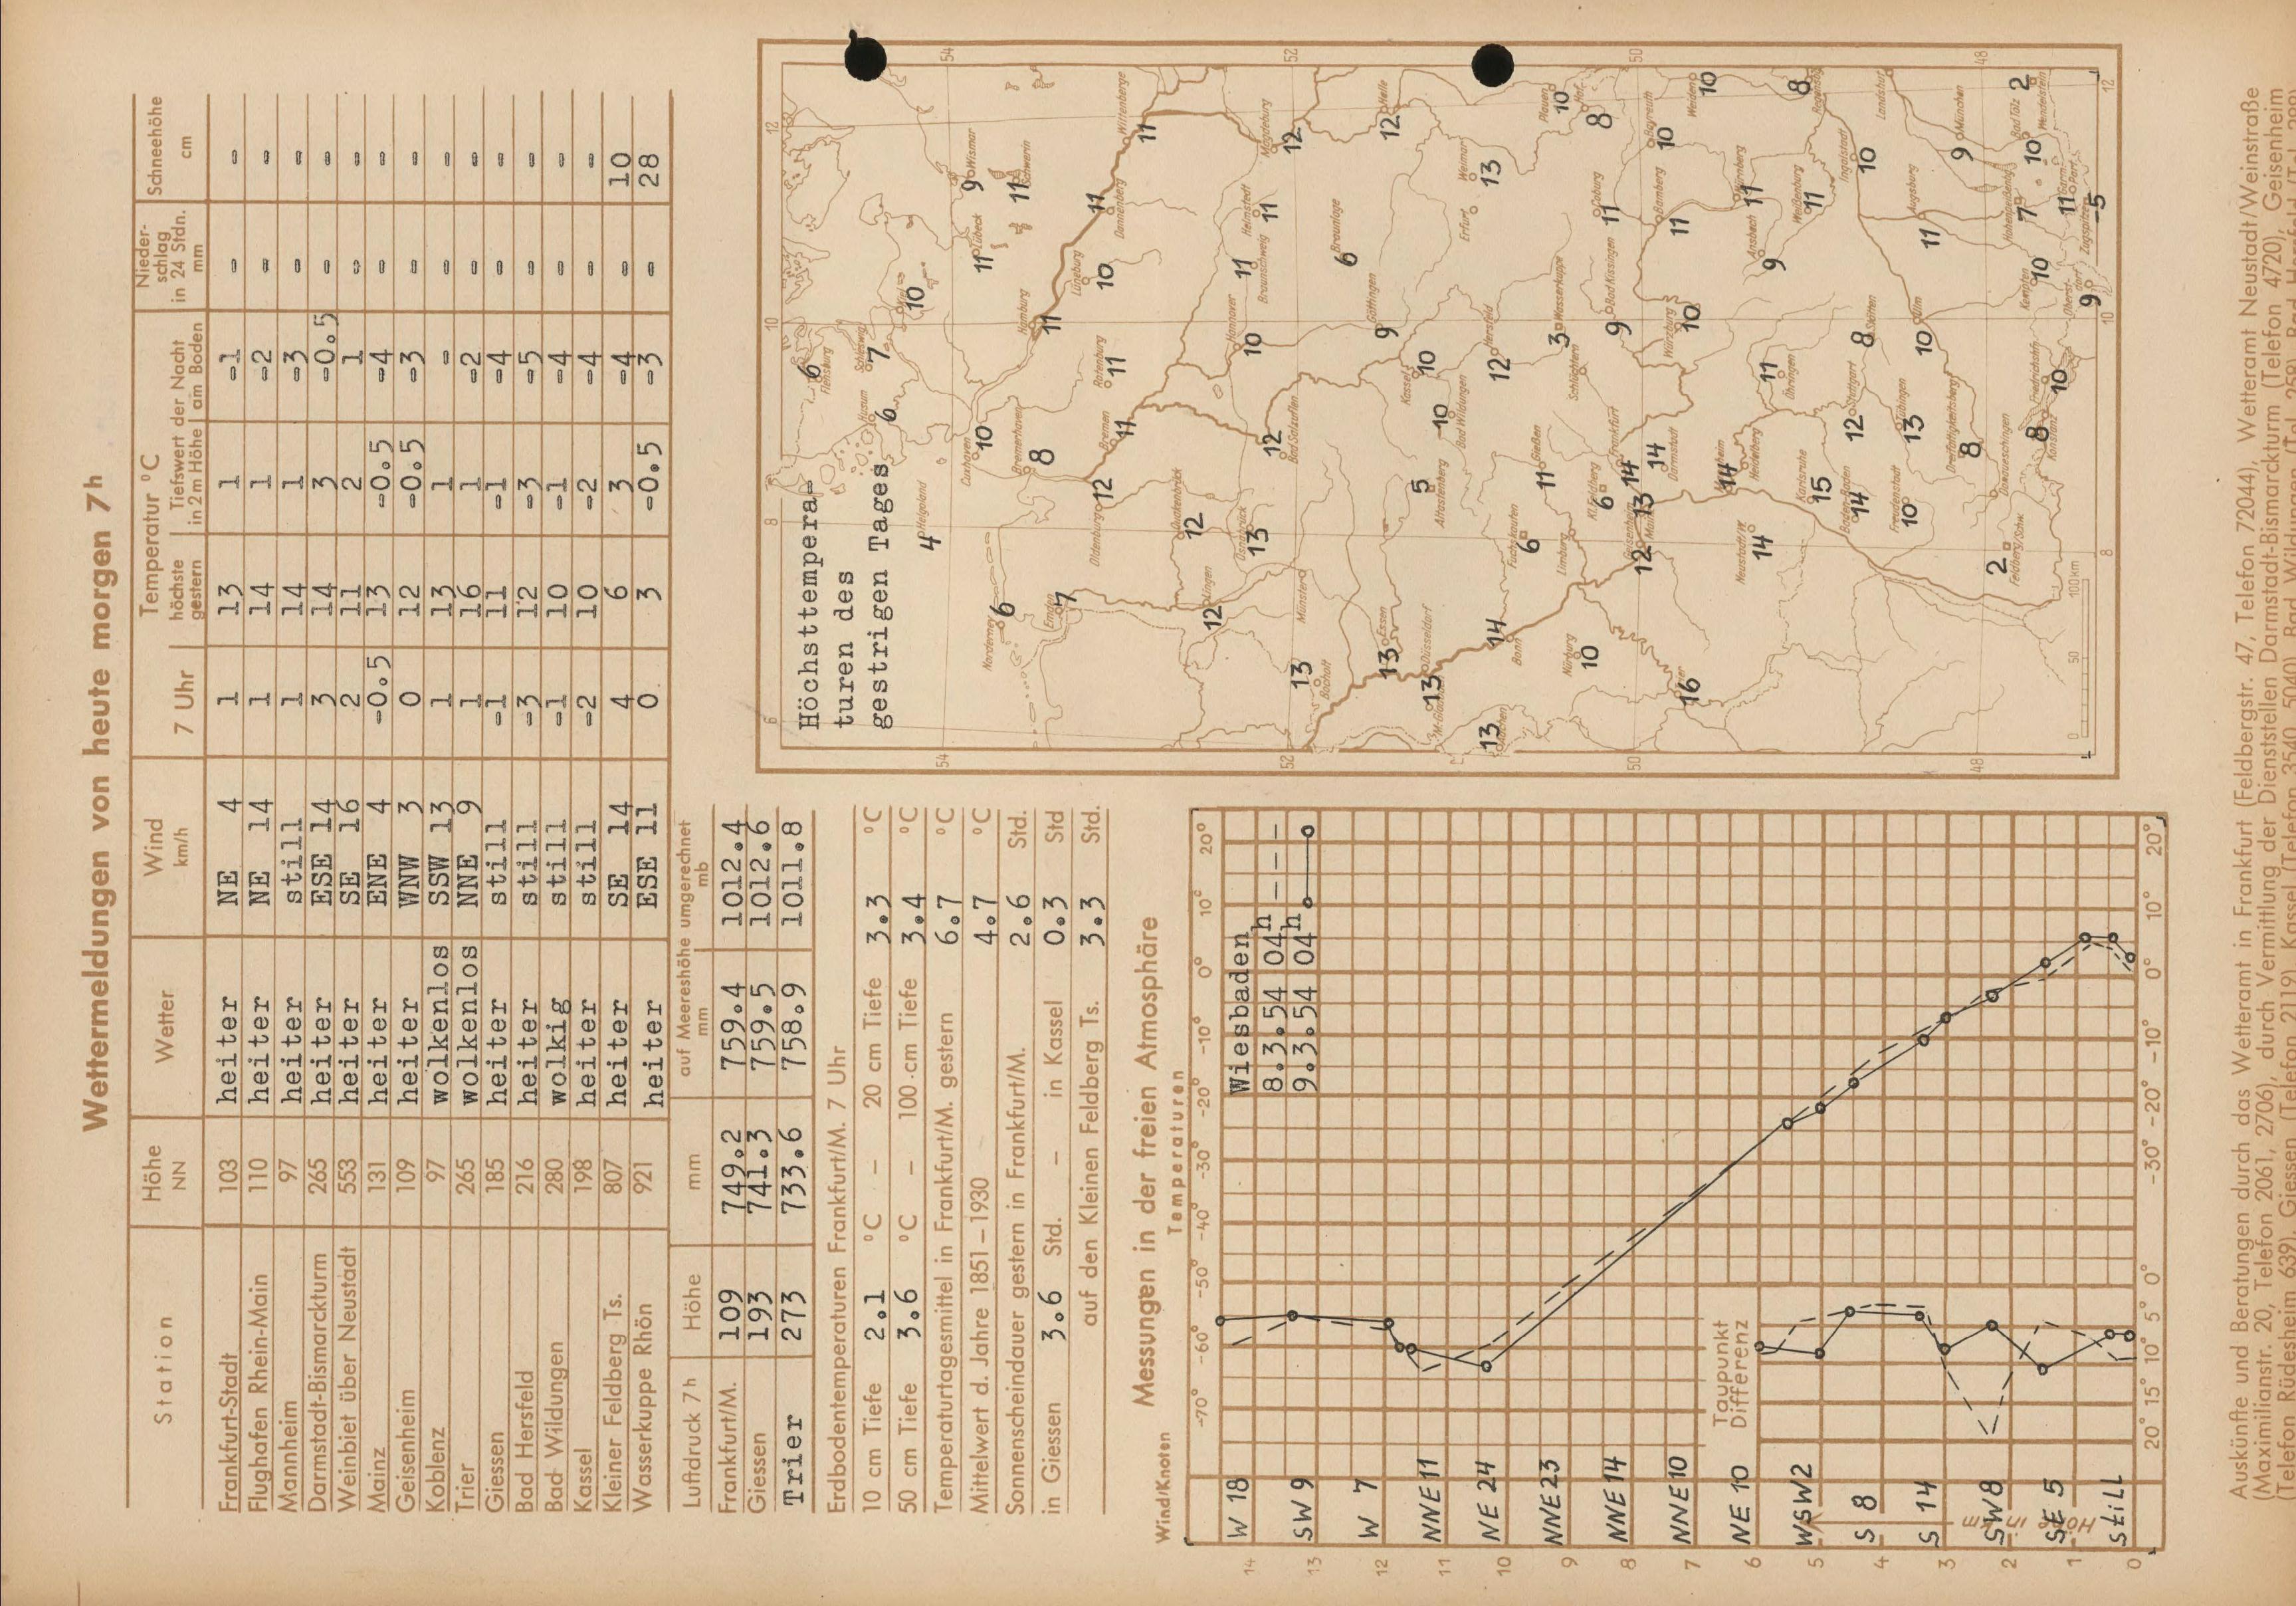 Wettermeldungen von heute morgen 7h
Station Höhe NN Wetter Wind km/h Temperatur °C Nieder- schlag in 24 Stdn. mm Schneehöhe cm
7 Uhr höchste gestern Tiefswert der Nacht in 2 m Höhe am Boden
Frankfurt-Stadt 103 heiter NE 4 1 13 1 -1 - -
Flughafen Rhein-Main 110 heiter NE 14 1 14 1 -2 - -
Mannheim 97 heiter still 1 14 1 -3 - -
Darmstadt-Bismarckturm 265 heiter ESE 14 3 14 3 -0.5 - -
Weinbiet über Neustadt 553 heiter SE 16 2 11 2 1 - -
Mainz 131 heiter ENE 4 -0.5 13 -0.5 -4 - -
Geisenheim 109 heiter WNW 3 0 12 -0.5 -3 - -
Koblenz 97 wolkenlos SSW 13 1 13 1 - - -
Trier 265 wolkenlos NNE 9 1 16 1 -2 - -
Giessen 185 heiter still -1 11 -1 -4 - -
Bad Hersfeld 216 heiter still -3 12 -3 -5 - -
Bad Wildungen 280 wolkig still -1 10 -1 -4 - -
Kassel 198 heiter still -2 10 -2 -4 - -
Kleiner Feldberg Ts. 807 heiter SE 14 4 6 3 -4 - 10
Wasserkuppe Rhön 921 heiter ESE 11 0 3 -0.5 -3 - 28
Luftdruck 7h Höhe mm auf Meereshöhe umgerechnet mm mb
Frankfurt/M. 109 749.2 759.4 1012.4
Giessen 193 741.3 759.5 1012.6
Trier 273 733.6 758.9 1011.8
Erdbodentemperaturen Frankfurt/M. 7 Uhr
10 cm Tiefe 2.1 °C – 20 cm Tiefe 3.3 °C
50 cm Tiefe 3.6 °C – 100 cm Tiefe 3.4 °C
Temperaturtagesmittel in Frankfurt/M. gestern 6.7 °C
Mittelwert d. Jahre 1851–1930 4.7 °C
Sonnenscheindauer gestern in Frankfurt/M. 2.6 Std.
in Giessen 3.6 Std. – in Kassel 0.3 Std
auf den Kleinen Feldberg Ts. 3.3 Std.
Messungen in der freien Atmosphäre
Wind/Knoten Temperaturen
-70° -60° -50° -40° -30° -20° -10° 0° 10° 20°
Wiesbaden
8.3.54 04h
9.3.54 04h
14 W 18
13 SW 9
12 W 7
11 NNE 11
10 NE 24
9 NNE 23
8 NNE 14
7 NNE 10
6 NE 10
5 WSW 2
4 S 8
3 S 14
2 SW 8
1 SE 5
0 still
Höhe in km
Taupunkt
Differenz
20° 15° 10° 5° 0° -30° -20° -10° 0° 10° 20°
Höchsttempera-
turen des
gestrigen Tages
6 8 10 12
54 54
52 52
50 50
48 48
6 Flensburg
Schleswig 7
Husum 6
Kiel 10
4 Helgoland
Cuxhaven 10
11 Lübeck
9 Wismar
11 Schwerin
Norderney 6
Emden 7
Bremerhaven 8
Hamburg 11
Lüneburg 10
Dannenberg 11
Wittenberge 11
Oldenburg 12
Bremen 11
Rotenburg 11
Lingen 12
Quakenbrück 12
Osnabrück 13
Bad Salzuflen 12
Hannover 10
Braunschweig 11
Helmstedt 11
Magdeburg 12
Münster
Bocholt 13
Braunlage 6
Göttingen 9
Halle 12
Essen 13
Düsseldorf
M-Gladbach 13
Aachen 13
Altastenberg 5
Kassel 10
Bad Wildungen 10
Hersfeld 12
Erfurt
Weimar 13
Bonn 14
Fuchskauten 6
Giessen 11
Limburg
Wasserkuppe 3
Schlüchtern
Plauen 10
Hof 8
Nürburg 10
Kl. Feldberg 6
Frankfurt 14
Geisenheim 12
Mainz 13
Darmstadt 14
Bad Kissingen 9
Coburg 11
Bayreuth 10
Bamberg 11
Weiden 10
Würzburg 10
Trier 16
Neustadt/W. 14
Mannheim 14
Heidelberg
Öhringen 11
Ansbach 9
Nürnberg 11
Weißenburg 11
Regensbg. 8
Karlsruhe 15
Baden-Baden 14
Stuttgart 12
Stötten 8
Ingolstadt 10
Landshut
Freudenstadt 10
Tübingen 13
Ulm 10
Augsburg 11
München 9
Feldberg/Schw. 2
Donaueschingen
Dreifaltigkeitsberg 8
Konstanz 8
Friedrichshfn. 10
Kempten 10
Oberstdorf 9
Hohenpeißenbg. 7
Bad Tölz 10
Wendelstein 2
Garm. Part. 11
Zugspitze -5
0 50 100 km
Auskünfte und Beratungen durch das Wetteramt in Frankfurt (Feldbergstr. 47, Telefon 72044), Wetteramt Neustadt/Weinstraße
(Maximilianstr. 20, Telefon 2061, 2706), durch Vermittlung der Dienststellen Darmstadt-Bismarckturm (Telefon 4720), Geisenheim
(Telefon Rüdesheim 639), Giessen (Telefon 2119), Kassel (Telefon 3540, 5040)